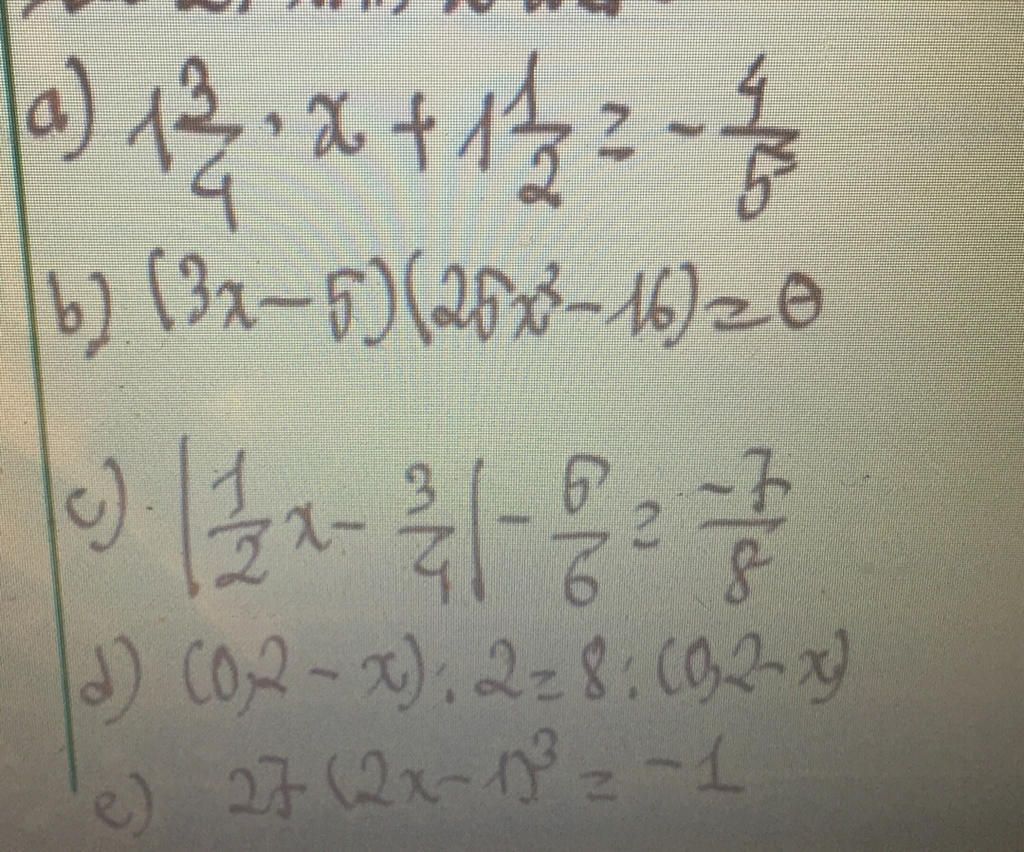 a) 1 3/4 . x + 1 1/2 = - 4/5
b) (3x - 5)(25x² - 16) = 0
c) |1/2 x - 3/4| - 5/6 = -7/8
d) (0,2 - x) : 2 = 8 : (0,2 - x)
e) 27 (2x - 1)³ = -1